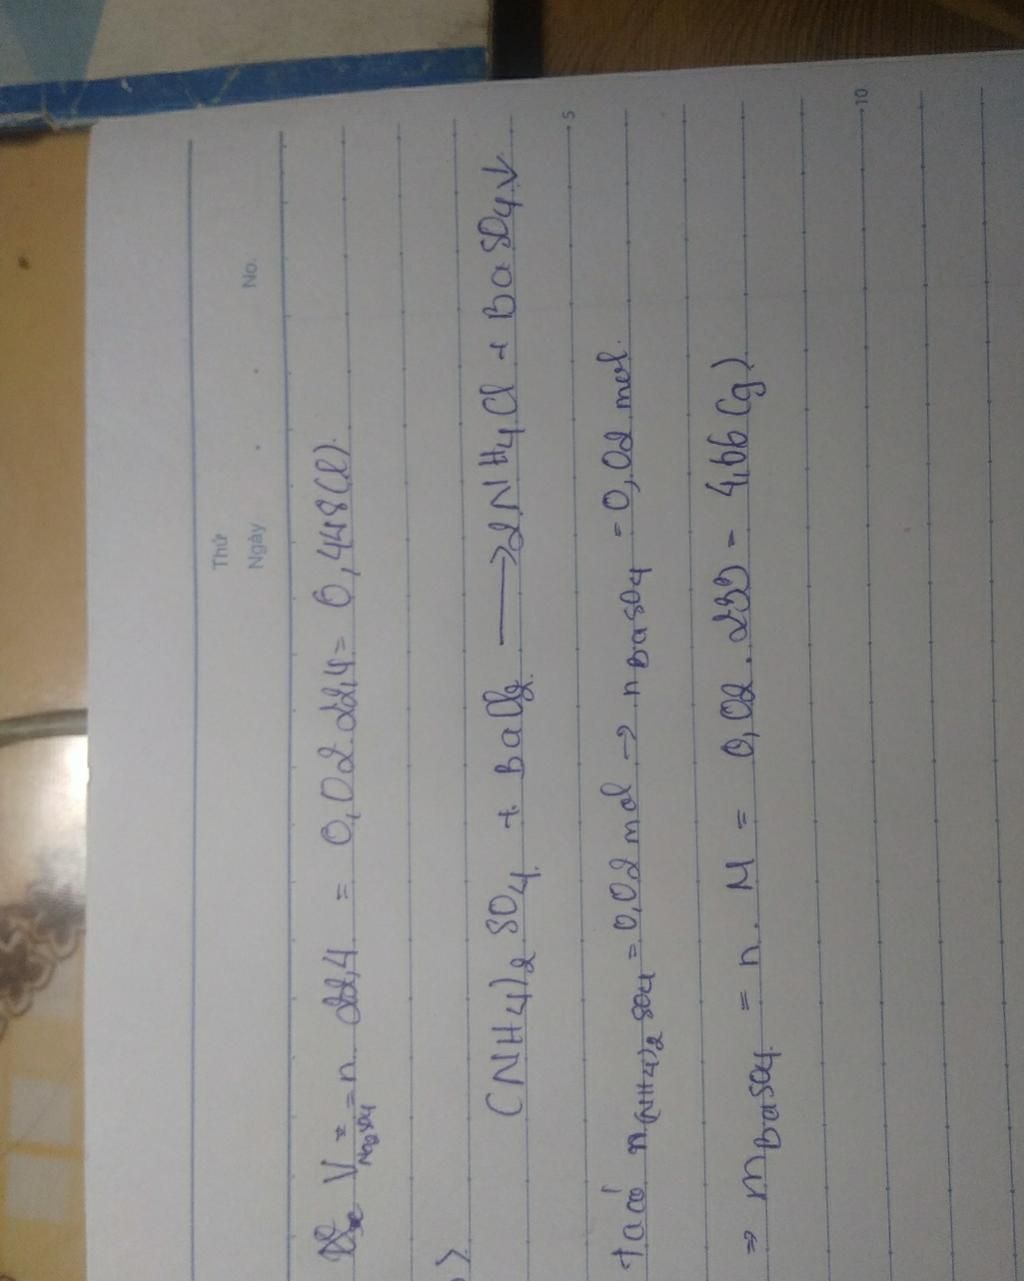 Thứ
Ngày . . No.
V Na2SO4 = n. 22,4 = 0,02.22,4 = 0,448(l).
(NH4)2SO4 + BaCl2 ⟶ 2NH4Cl + BaSO4↓
5
ta có n(NH4)2SO4 = 0,02 mol → nBaSO4 = 0,02 mol.
⇒ mBaSO4 = n. M = 0,02.233 = 4,66(g)
10